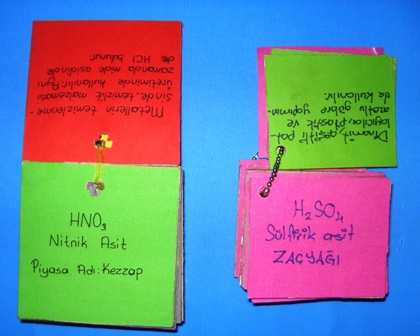 Metallerin temizlenme-
sinde, temizlik malzemesi
üretiminde kullanılır. Aynı
zamanda mide asidinde
de HCl bulunur.
HNO3
Nitrik Asit
Piyasa Adı: Kezzap
Dinamit, çeşitli pat-
layıcılar, plastik ve
azotlu gübre yapımın-
da kullanılır.
H2SO4
Sülfirik asit
ZAÇYAĞI